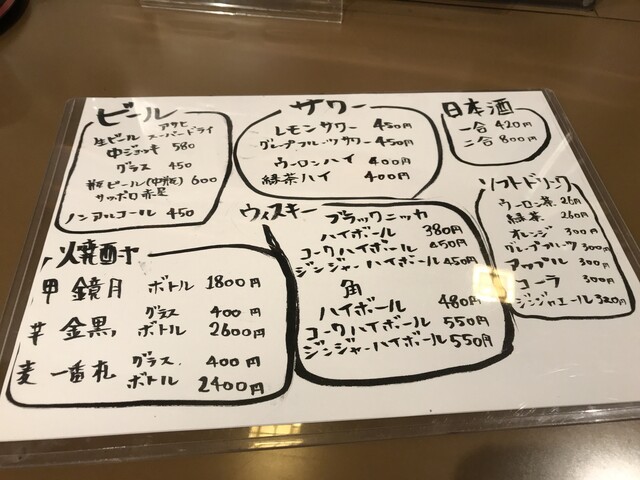 ビール
生ビール アサヒ スーパードライ
中ジョッキ 580
グラス 450
瓶ビール(中瓶) 600
サッポロ赤星
ノンアルコール 450
サワー
レモンサワー 450円
グレープフルーツサワー 450円
ウーロンハイ 400円
緑茶ハイ 400円
日本酒
一合 420円
二合 800円
焼酎
甲 鏡月 ボトル 1800円
グラス 400円
芋 金黒 ボトル 2600円
グラス 400円
麦 一番札 ボトル 2400円
ウィスキー
ブラックニッカ
ハイボール 380円
コークハイボール 450円
ジンジャーハイボール 450円
角
ハイボール 480円
コークハイボール 550円
ジンジャーハイボール 550円
ソフトドリンク
ウーロン茶 260円
緑茶 260円
オレンジ 300円
グレープフルーツ 300円
アップル 300円
コーラ 300円
ジンジャエール 320円